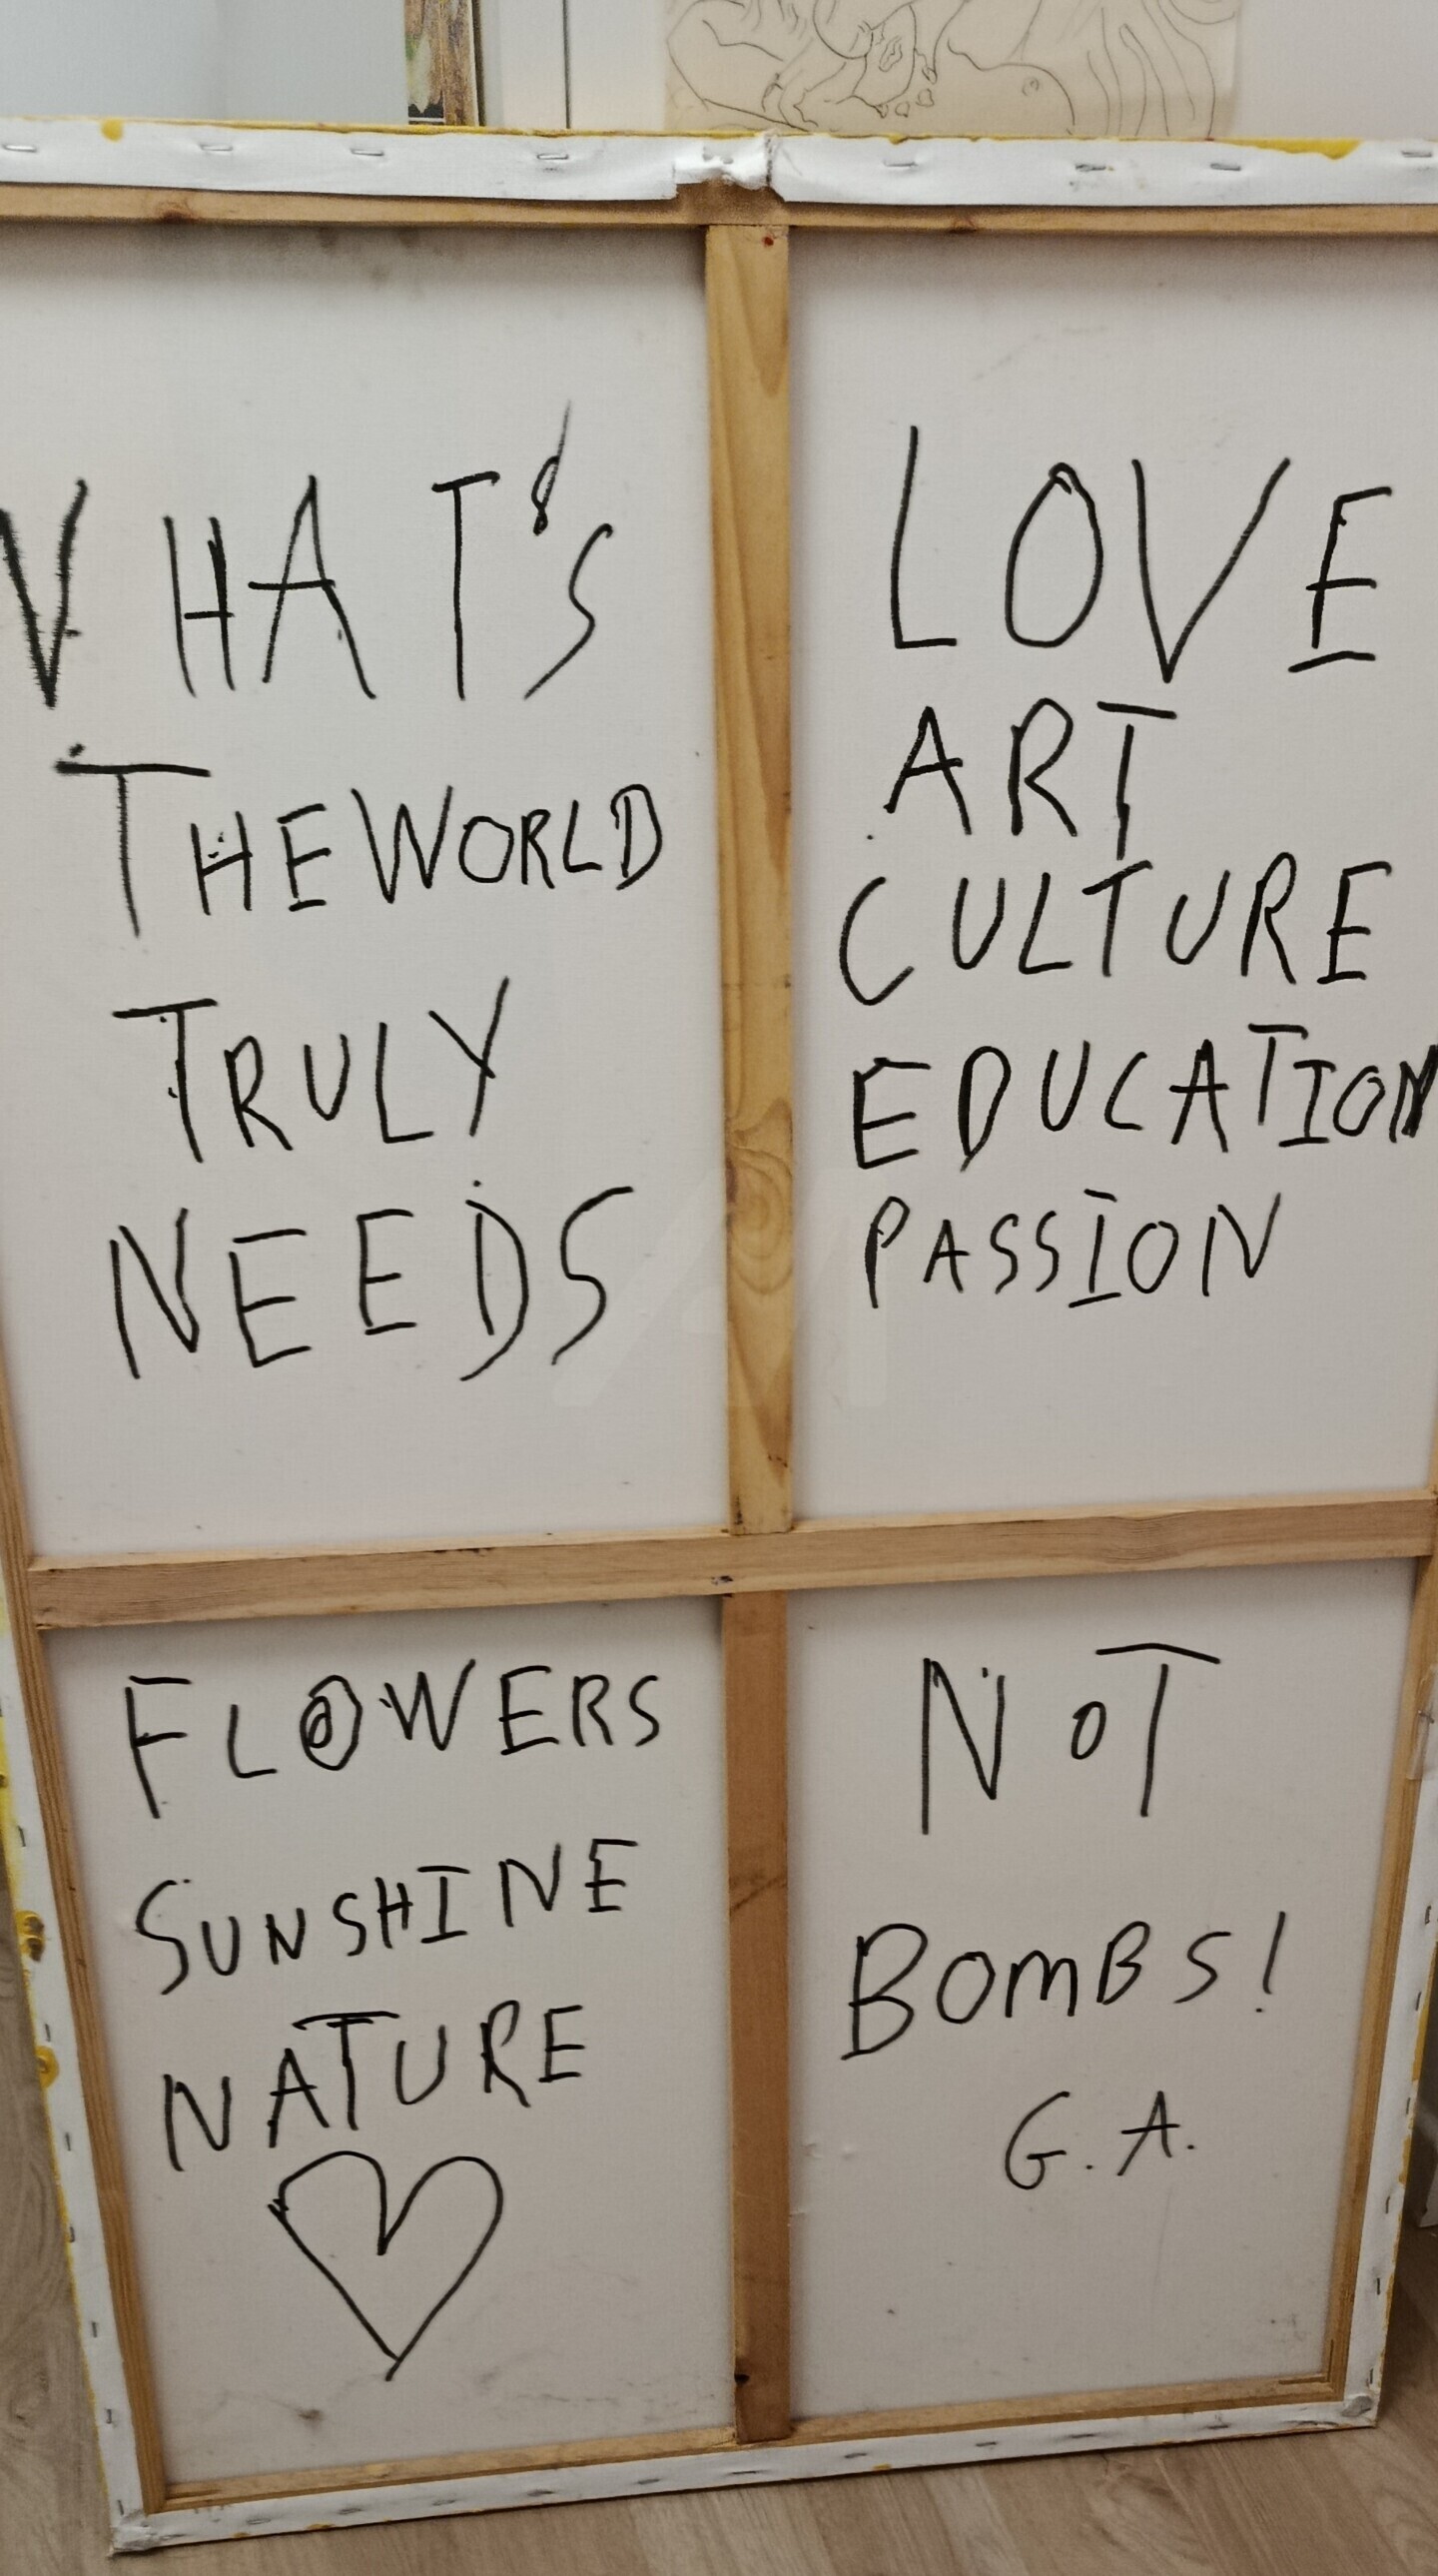 WHAT'S
THE WORLD
TRULY
NEEDS
LOVE
ART
CULTURE
EDUCATION
PASSION
FLOWERS
SUNSHINE
NATURE
NOT
BOMBS!
G.A.